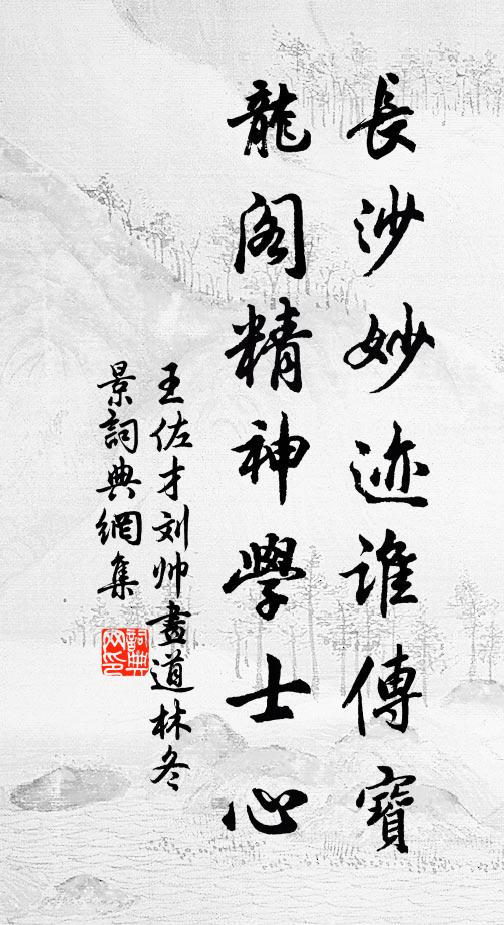 長沙妙迹誰傳寶
龍阁精神學士心
王佐才刘帅畫道林冬
景詞典網集
詞典網印